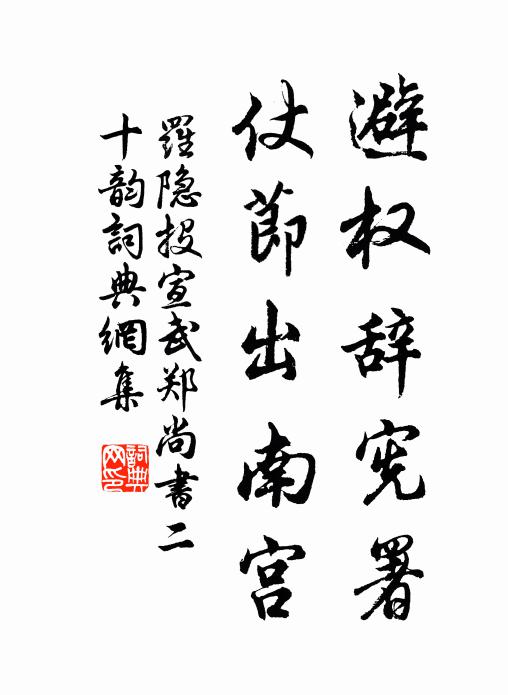 避权辞宪署
仗節出南宫
羅隐投宣武郑尚書二
十韵詞典網集
詞典
网印